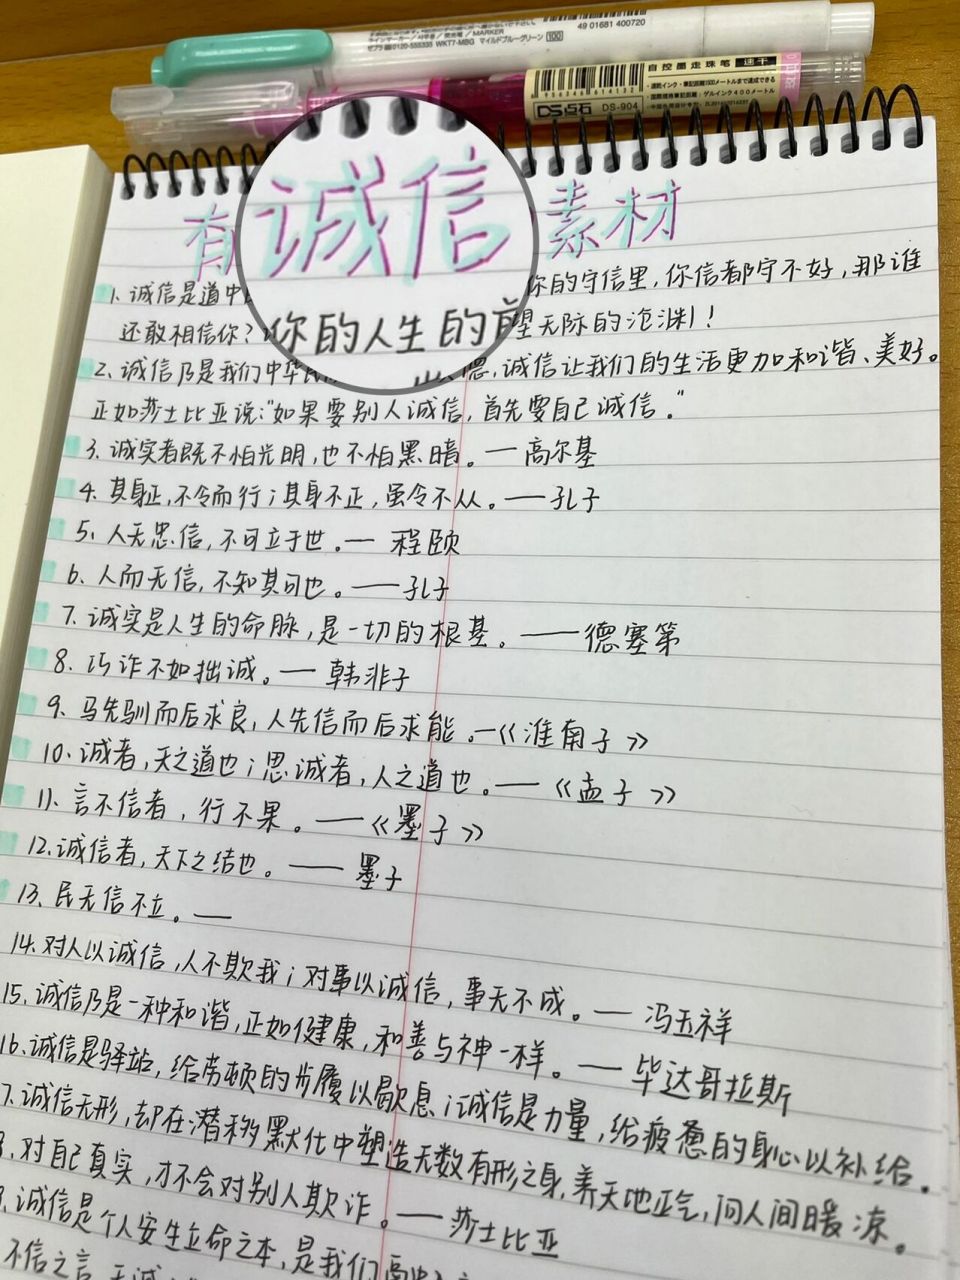 49 01681 400720
ゼブラ(株)0120-555335 WKT7-MBG マイルドブルーグリーン 100
自控墨走珠笔 速干
DS点石 DS-904
有 诚信 素材
1. 诚信是道中 你的守信里，你信都守不好，那谁
还敢相信你？ 你的人生的前 望无际的沧渊！
2、诚信乃是我们中华民 德，诚信让我们的生活更加和谐、美好。
正如莎士比亚说："如果要别人诚信，首先要自己诚信。"
3、诚实者既不怕光明，也不怕黑暗。—高尔基
4、其身正，不令而行；其身不正，虽令不从。——孔子
5、人无忠信，不可立于世。— 程颐
6、人而无信，不知其可也。——孔子
7、诚实是人生的命脉，是一切的根基。——德塞第
8、巧诈不如拙诚。— 韩非子
9、马先驯而后求良，人先信而后求能。—《淮南子》
10、诚者，天之道也；思诚者，人之道也。——《孟子》
11、言不信者，行不果。——《墨子》
12、诚信者，天下之结也。—— 墨子
13、民无信不立。—
14、对人以诚信，人不欺我；对事以诚信，事无不成。— 冯玉祥
15、诚信乃是一种和谐，正如健康，和善与神一样。— 毕达哥拉斯
16、诚信是驿站，给劳顿的步履以歇息；诚信是力量，给疲惫的身心以补给。
7、诚信无形，却在潜移默化中塑造无数有形之身，养天地正气，问人间暖凉。
8、对自己真实，才不会对别人欺诈。——莎士比亚
9、诚信是个人安生立命之本，是我们高中
不信之言，无诚